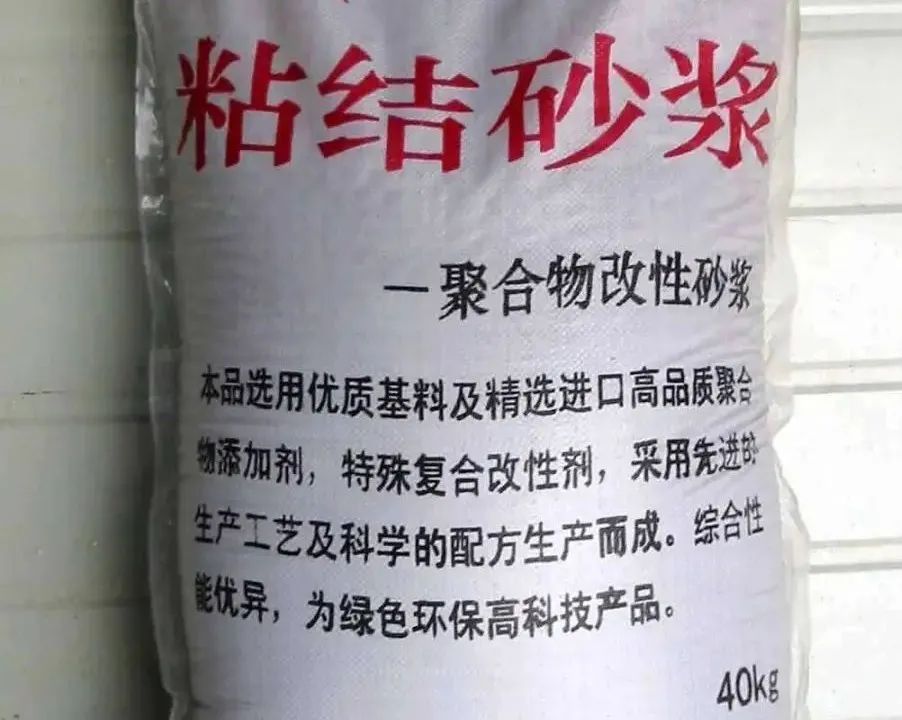 粘结砂浆
—聚合物改性砂浆
本品选用优质基料及精选进口高品质聚合
物添加剂，特殊复合改性剂，采用先进的
生产工艺及科学的配方生产而成。综合性
能优异，为绿色环保高科技产品。
40kg